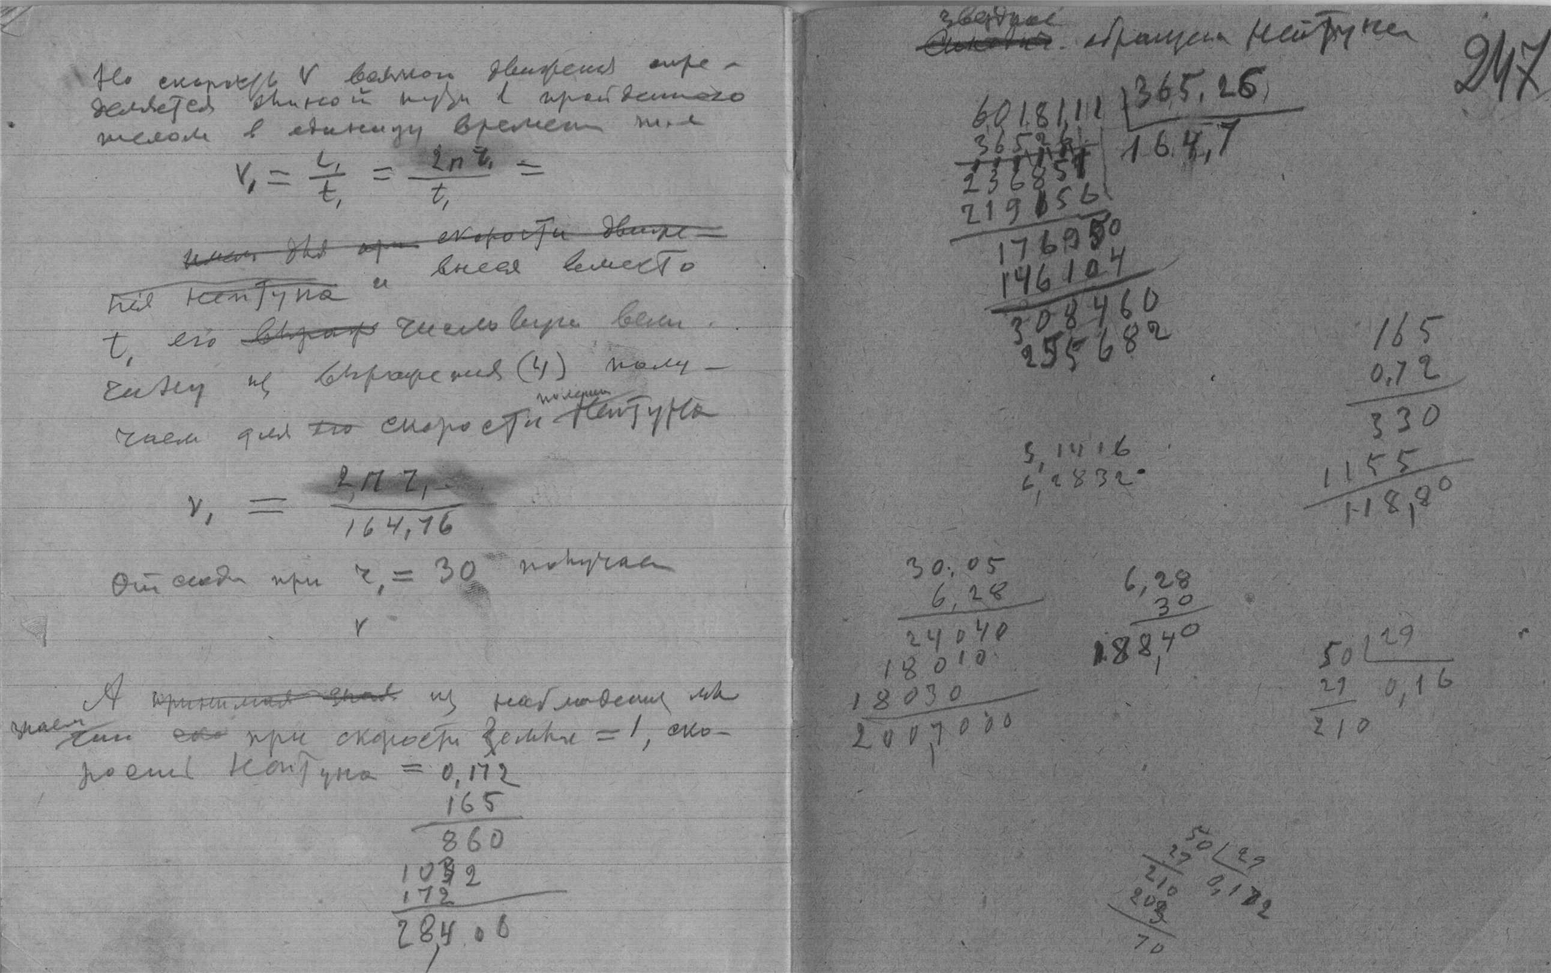 Но скорость v всякого движения опре-
деляется длиной пути l пройденного
телом в единицу времени т.е.
v₁ = l₁/t₁ = 2πr₁/t₁ =
скорости движе-
ния Нептуна и внеся вместо
t₁ его выраж числовую вели-
чину из выражения (4) полу-
чаем для его скорости Нептуна
v₁ = 2πr₁/164,76
Отсюда при r₁ = 30 получаем
v
А принимая зная из наблюдения мы
знаем что при скорости Земли = 1, ско-
рость Нептуна = 0,172
165
860
1032
172
28,4.06
звездное
обращения Нептуна
247
60181,11 365,26
36526 164,7
236851
219156
176950
146104
308460
255682
165
0,72
330
1155
118,80
3,1416
6,2832
30,05
6,28
24040
18010
18030
2007000
6,28
30
188,40
50 29
29 0,16
210
50 29
29 0,172
210
203
70